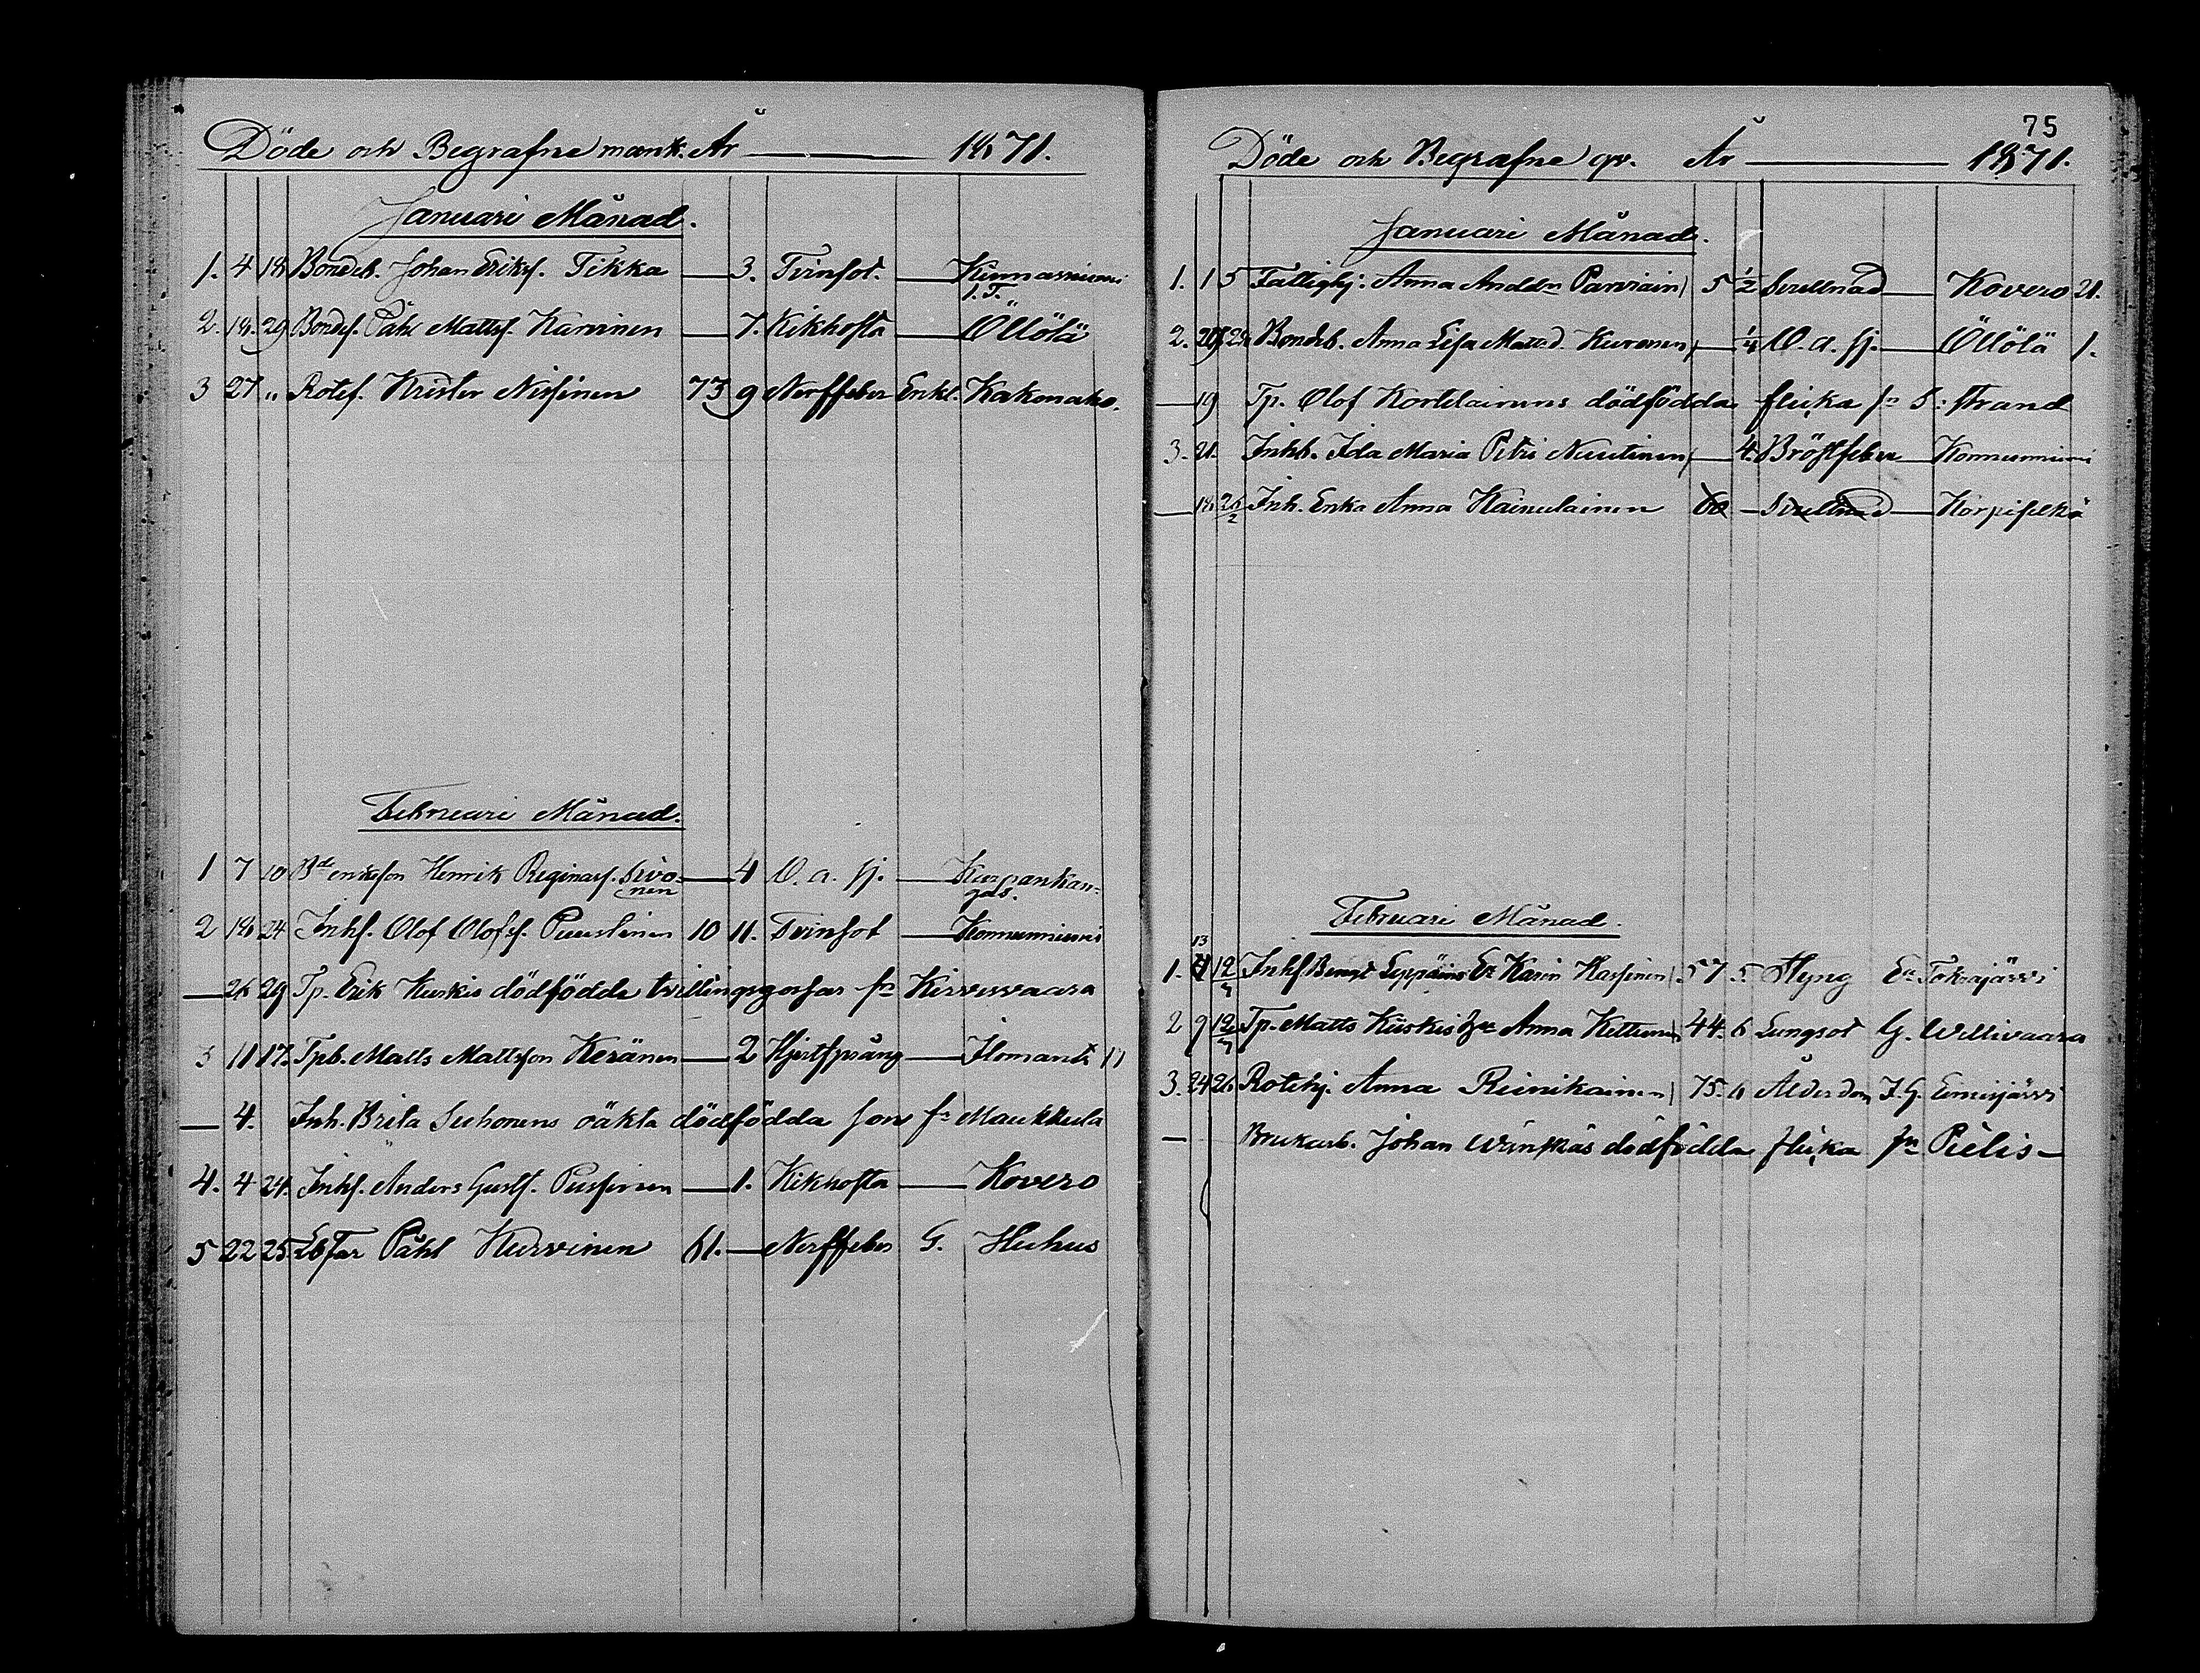 Döde och Begrafne mank. År 1871.
Januari Månad.
1. 4 18 Bondeb. Johan Eriks. Tikka — 3. Tvinsot. — Kinnasniemi
I. T.
2. 18. 29 Bondes. Påhl Mattss. Karvinen — 7. Kikhosta — Öllölä
3 27 " Rotef. Krister Nissinen 73 9 Nerffeber Enkl. Kakonaho.
Februari Månad.
1 7 10 Henrik Reginas. Sivo= — 4 O. a. sj. — Kurpankan=
nen gas.
2 18 24 Inhs. Olof Olofss. Puustinen 10 11. Tvinsot — Konnunniemi
— 26 29 Tp. Erik Kuskis dödfödde tvillingsgossar fn Kirvesvaara
3 11 17. Tpb. Matts Mattsson Keränen — 2 Hjertsprång — Ilomants 17
— 4. Inh. Brita Suhonens oäkta dödfödda son fn Maukkula
4. 4 24. Inhs. Anders Gusts. Pussinen — 1. Kikhosta — Kovero
5 22 25. Påhl Hurvinen 61. — Nerffeber G. Huhus
75
Döde och Begrafne qv. År 1871.
Januari Månad.
1. 1 5 Fattighj. Anna Anddn Parviain 5 1/2 Svullnad — Kovero 21.
2. 29 Bondeb. Anna Lisa Mattsd. Kuronen — 1/4 O. a. sj. — Öllölä 1.
— 19 Tp. Olof Kortelainens dödfödda flicka fn S: strand
3. 21. Inhb. Ida Maria Petri Nuutinen — 4. Bröstfeber — Konnunniemi
— 18 26/2 Inh. Enka Anna Kainulainen 60 — Svullnad — Korpiselkä
Februari Månad.
13
1. 12 Inhs Bengt Leppäins Ea Karin Hassinen 57 5. Styng Ea Tokrajärvi
2 9 12 Tp. Matts Kiiskis hu Anna Kettunen 44. 6 Lungsot G. Willivaara
3. 24 26 Rotehj. Anna Reinikainen 75. 6 Ålderdom I. G. Eimisjärvi
— Brukarb. Johan dödfödda flicka fn Pielis